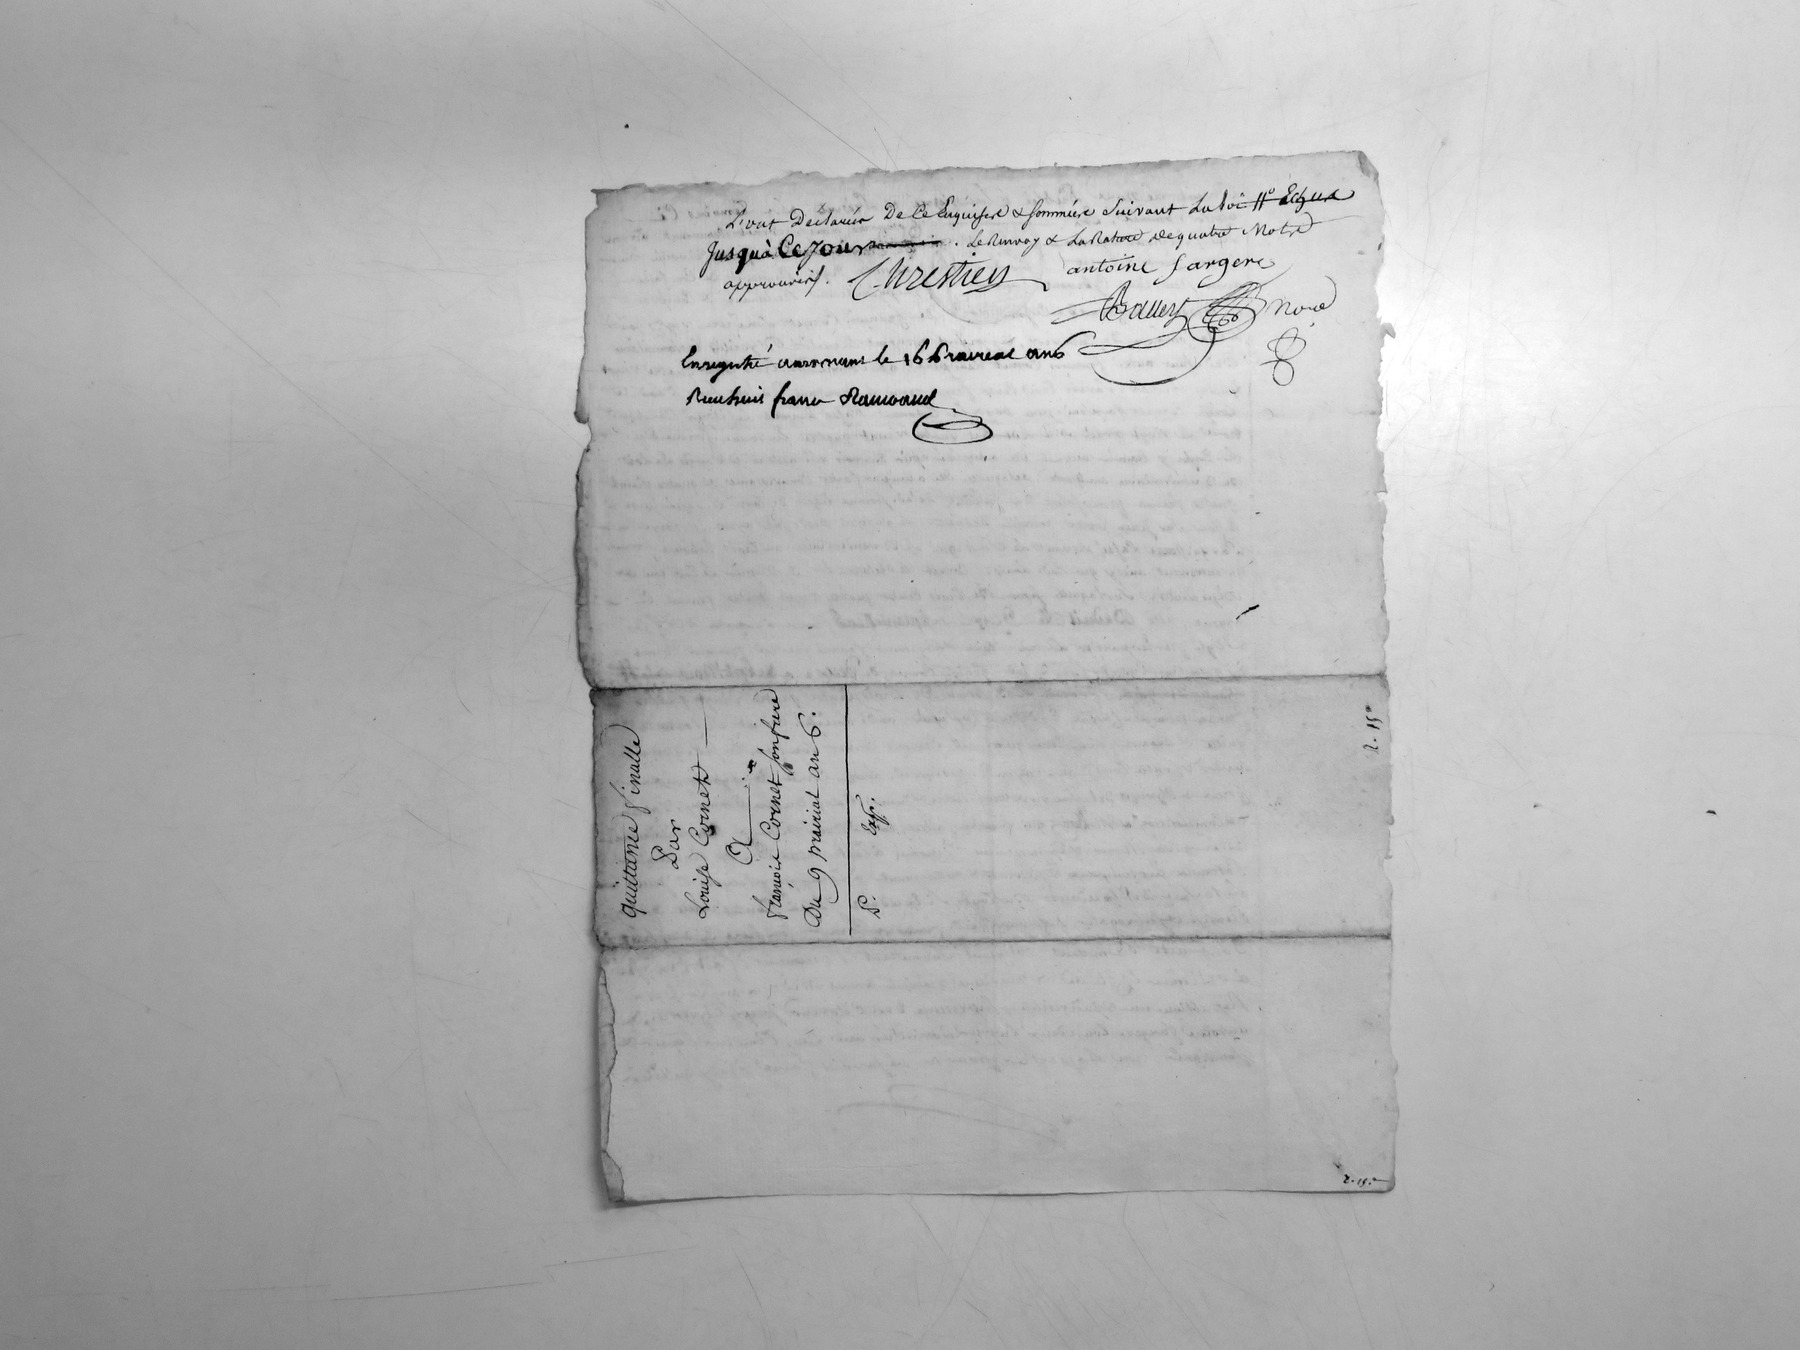 L'ont Declarés De Ce Enquisere & Sommére Suivant La Loi
Jusqu'à Ce Jour . Le Renvoy & La Rature de quatre Mots
approuvés. Chrestien antoine Sargere
Enregistré le 16 prairial an 6
Reçu huit francs
quittance finalle
Par
Louise Cornet
A
françois Cornet Son frere
Du 9 prairial an 6.
P. Exp.
2. 15.
2. 15.